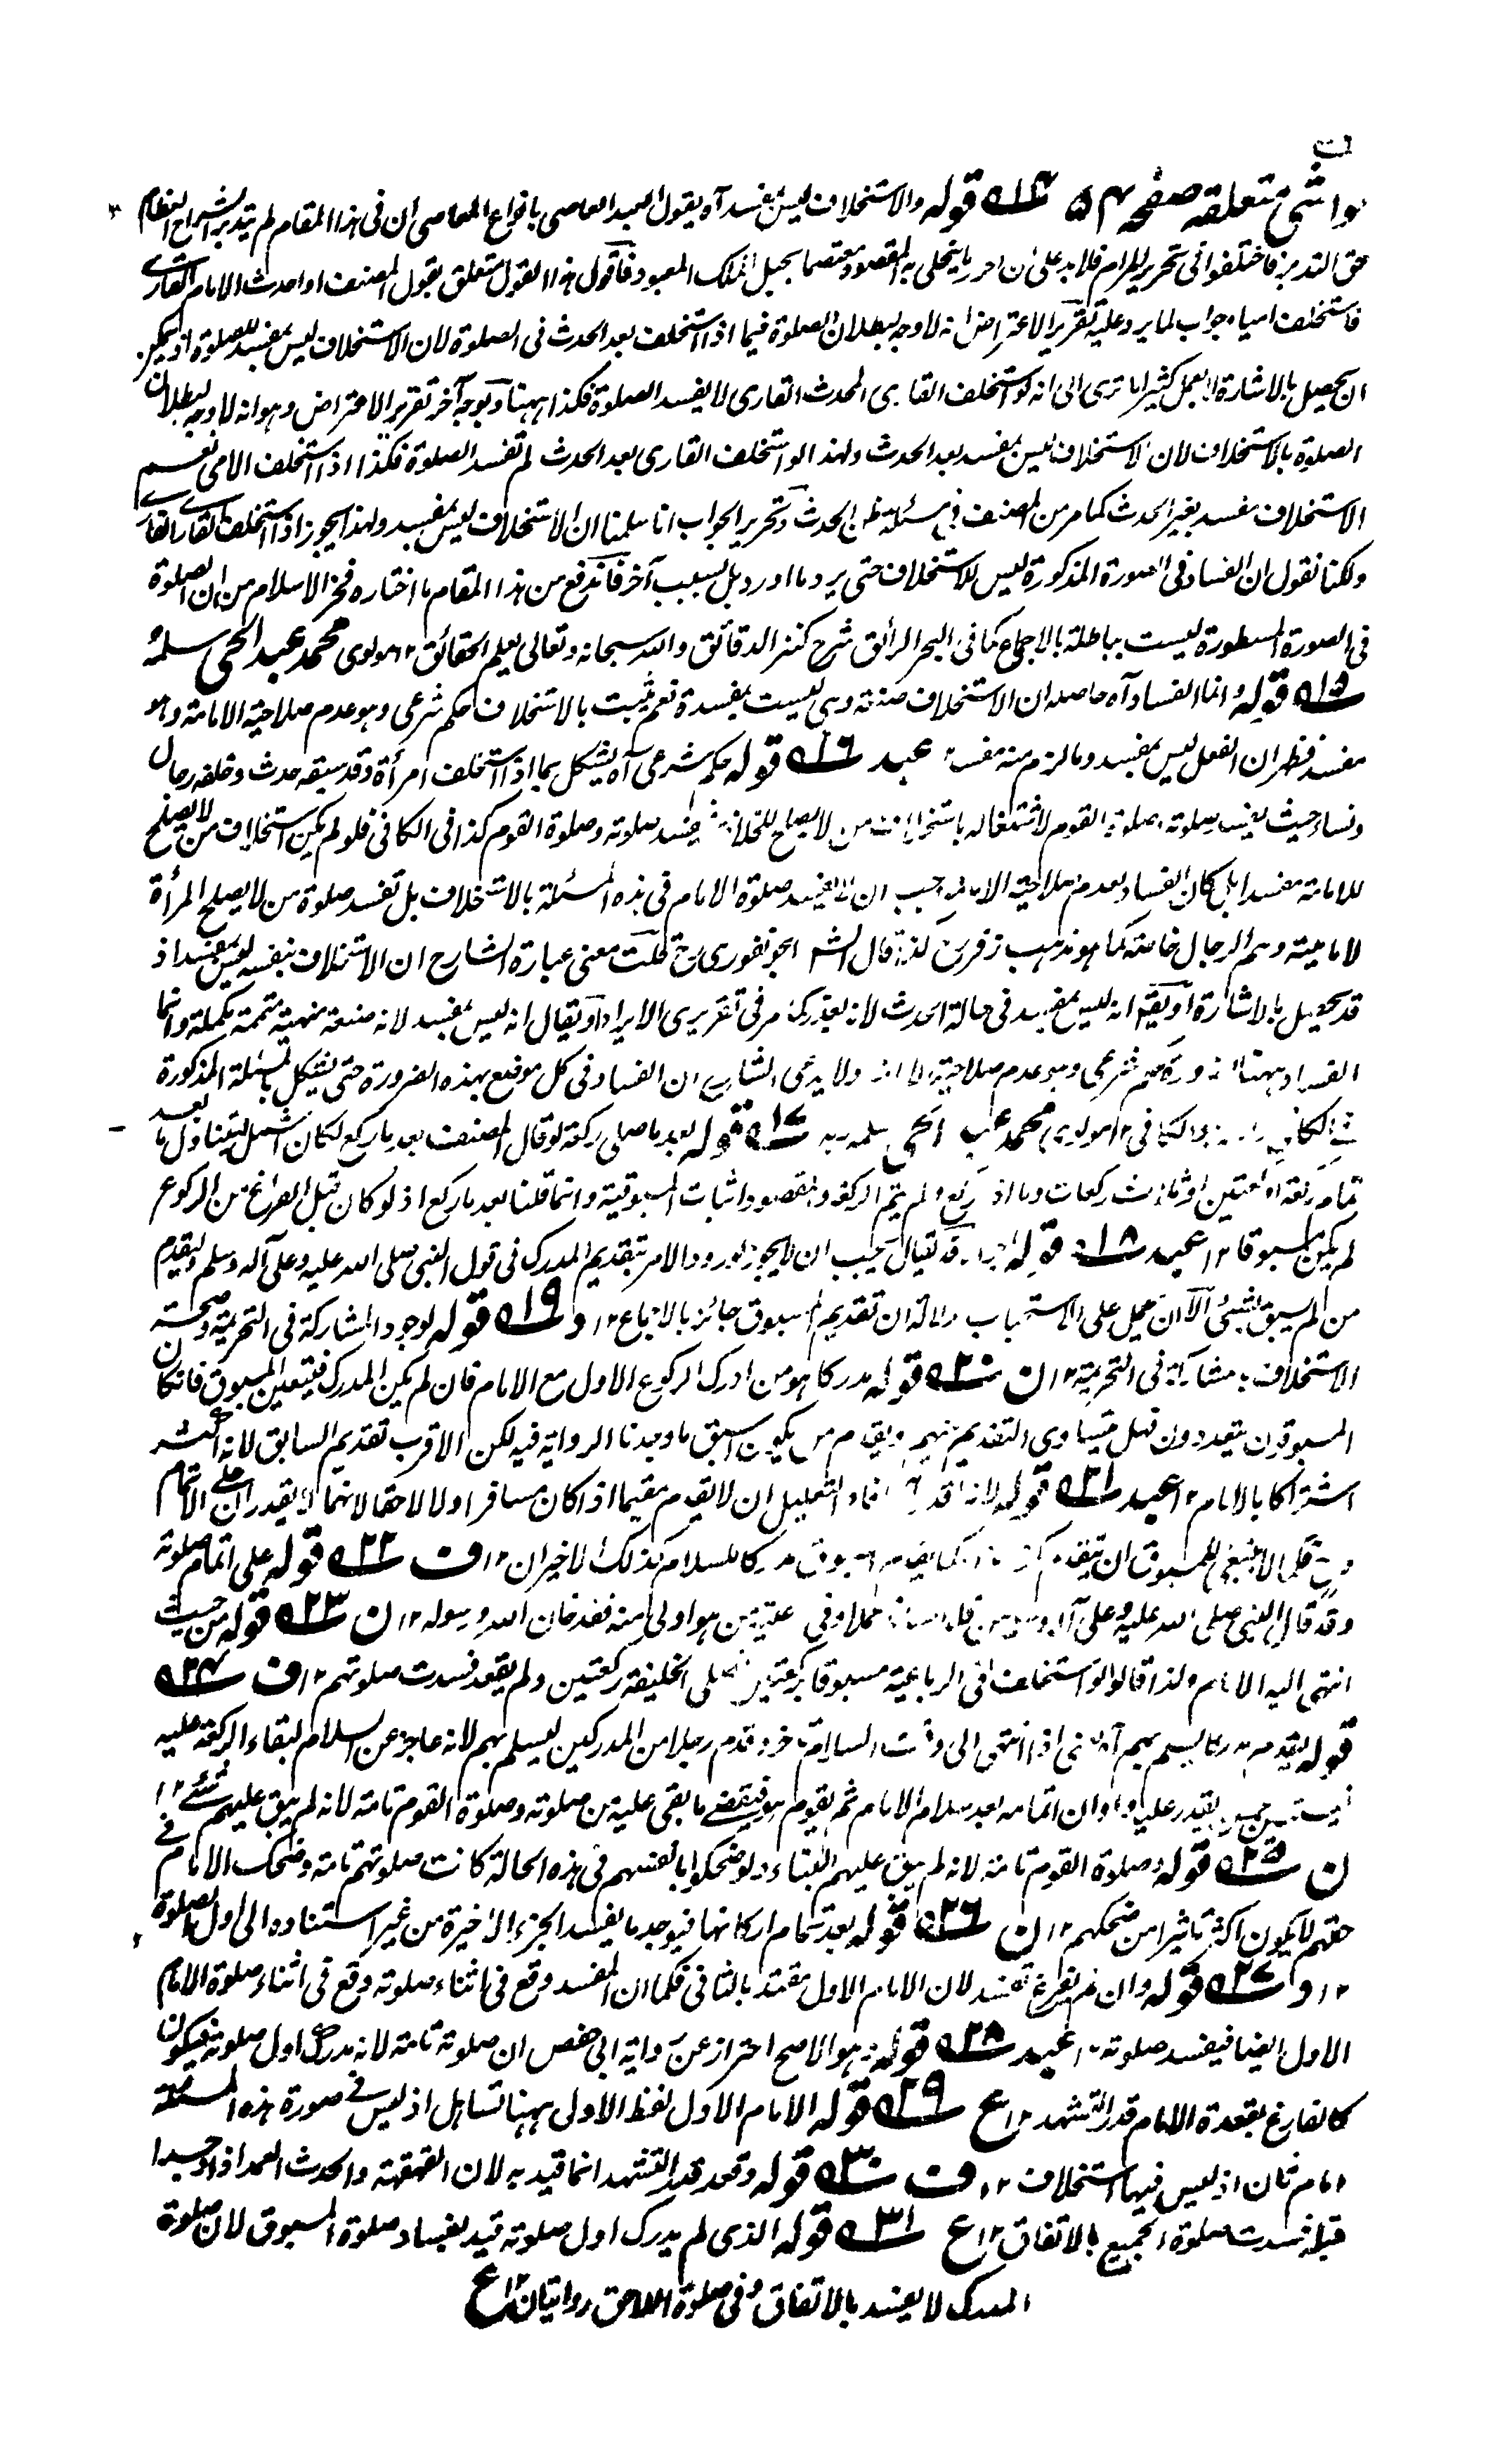 حواشی متعلقه صفحه ۵۴ ۱۴ قوله والاستخلاف لیس بمفسد آه یقول العبد العاصی بانواع المعاصی ان فی هذا المقام لم یتدبر الشراح العظام
حق التدبر فاختلفوا فی تحریر المرام فلا بد علی ان احرر ما ینجلی به المقصود معتصما بحبل الملک المعبود فاقول هذا القول متعلق بقول المصنف او احدث الامام القاری
فاستخلف امیا جواب لما یرد علیه تقریر الاعتراض انه لا وجه لبطلان الصلوة فیما اذا استخلف بعد الحدث فی الصلوة لان الاستخلاف لیس بمفسد للصلوة اذ یمکن
ان یحصل بالاشارة لا بعمل کثیر الا تری الی انه لو استخلف القاری المحدث القاری لا یفسد الصلوة فکذا ههنا وبوجه آخر تقریر الاعتراض وهو انه لا وجه لبطلان
الصلوة بالاستخلاف لان الاستخلاف لیس بمفسد بعد الحدث ولهذا لو استخلف القاری بعد الحدث لم تفسد الصلوة فکذا اذا استخلف الامی نعم
الاستخلاف مفسد بغیر الحدث کما مر من المصنف فی مسئلة ظن الحدث وتحریر الجواب انا سلمنا ان الاستخلاف لیس بمفسد ولهذا یجوز اذا استخلف القاری القاری
ولکنا نقول ان الفساد فی الصورة المذکورة لیس للاستخلاف حتی یرد ما اورد بل بسبب آخر فاندفع من هذا المقام ما اختاره فخر الاسلام من ان الصلوة
فی الصورة المسطورة لیست بباطلة بالاجماع کما فی البحر الرائق شرح کنز الدقائق والله سبحانه وتعالی یعلم الحقائق ۱۲ مولوی محمد عبد الحی سلمه
۱۵ قوله وانما الفساد آه حاصله ان الاستخلاف صنعه وهی لیست بمفسدة نعم ثبت بالاستخلاف حکم شرعی وهو عدم صلاحیة الامامة وهو
مفسد فظهر ان الفعل لیس بمفسد وما لزم منه مفسد عبد ۱۶ قوله حکم شرعی آه یشکل بما اذا استخلف امرأة وقد سبقه حدث وخلفه رجال
ونساء حیث یفسد صلوته وصلوة القوم لاشتغاله باستخلاف من لا یصلح للخلافة فیفسد صلوته وصلوة القوم کذا فی الکافی فلو لم یکن استخلاف من لا یصلح
للامامة مفسدا بل کان الفساد بعدم صلاحیة الامامة یجب ان لا یفسد صلوة الامام فی هذه المسئلة بالاستخلاف بل تفسد صلوة من لا یصلح المرأة
لامامیته وهم الرجال خاصة کما هو مذهب زفر کذا قال الجونفوری قلت معنی عبارة الشارح ان الاستخلاف بنفسه لیس بمفسد اذ
قد یحصل بالاشارة او یقال انه لیس بمفسد فی حالة الحدث لانه یعذر کما مر فی تقریری الایراد او یقال انه لیس بمفسد لانه صنعه منهیة متممة مکملة وانما
الفساد ههنا حکم شرعی وهو عدم صلاحیة الامامة ولا یدعی الشارح ان الفساد فی کل موضع بهذه الضرورة حتی یشکل بالمسئلة المذکورة
فی الکافی ۱۲ مولوی محمد عبد الحی سلمه ربه ۱۷ قوله بعد ما صلی رکعة لو قال المصنف بعد ما رکع لکان اشمل لیتناول ما بعد
تمام رکعة او رکعتین او ثلاث رکعات وما اذا رکع ولم یتم الرکعة والمقصود اثبات المسبوقیة وانما قلنا بعد ما رکع اذ لو کان قبل الفراغ من الرکوع
لم یکن مسبوقا ۱۲ عبد ۱۸ قوله قد یقال یجب ان لا یجوز لورود الامر بتقدیم المدرک فی قول النبی صلی الله علیه وعلی آله وسلم ولیقدم
من لم یسبق بشیٔ الا ان یحمل علی الاستحباب ان تقدیم المسبوق جائز بالاجماع ۱۲ د ۱۹ قوله لوجود المشارکة فی التحریمة وصحة
الاستخلاف بمشارکة فی التحریمة ۱۲ ن ۲۰ قوله مدرکا هو من ادرک الرکوع الاول مع الامام فان لم یکن المدرک فیتعین المسبوق فان کان
المسبوقون یتعددون فهل یتساوی التقدیم بینهم ویقدم من یکون اسبق ما وجدنا الروایة فیه لکن الاقرب تقدیم السابق لانه اکثر
اشتراکا بالامام ۱۲ عبد ۲۱ قوله لانه اقدر التعلیل ان لا یقدم مقیما اذا کان مسافرا ولا لاحقا لانهما لا یقدران علی الاتمام
فکما لا ینبغی للمسبوق ان یتقدم مدرکا للسلام کذلک الاخیران ۱۲ ف ۲۲ قوله علی اتمام صلوته
وقد قال النبی صلی الله علیه وعلی آله وسلم من قلد انسانا عملا وفی رعیته من هو اولی منه فقد خان الله ورسوله ۱۲ ن ۲۳ قوله من حیث
انتهی الیه الامام ولذا قالوا لو استخلف فی الرباعیة مسبوقا برکعتین فصلی الخلیفة رکعتین ولم یقعد فسدت صلوتهم ۱۲ ف ۲۴
قوله یقدم مدرکا یسلم بهم آه یعنی اذا انتهی الی وقت السلام تاخر وقدم رجلا من المدرکین لیسلم بهم لانه عاجز عن السلام لبقاء الرکعة علیه
بمن یقدر علیه واوان اتمامه بعد سلام الامام ثم یقوم هو فیقضی ما بقی علیه من صلوته وصلوة القوم تامة لانه لم یبق علیهم شیٔ ۱۲
ن ۲۵ قوله وصلوة القوم تامة لانه لم یبق علیهم البناء ولو ضحکوا بانفسهم فی هذه الحالة کانت صلوتهم تامة وضحک الامام فی
حقهم لا یکون اکثر تاثیرا من ضحکهم ۱۲ ن ۲۶ قوله بعد تمام ارکانها فیوجد ما یفسد الجزء الاخیرة من غیر استناده الی اول الصلوة
۱۲ د ۲۷ قوله وان لم یفرغ تفسد لان الامام الاول مقتد بالثانی فکما ان المفسد وقع فی اثناء صلوته وقع فی اثناء صلوة الامام
الاول ایضا فیفسد صلوته ۱۲ عبد ۲۸ قوله هو الاصح احتراز عن روایة ابی حفص ان صلوته تامة لانه مدرک اول صلوته فیکون
کالفارغ بقعدة الامام قدر التشهد ۱۲ ع ۲۹ قوله الامام الاول لفظ الاول ههنا تساهل اذ لیس فی صورة هذه المسئلة
امام ثان اذ لیس فیها استخلاف ۱۲ ف ۳۰ قوله وقعد قدر التشهد انما قید به لان القهقهة والحدث العمد اذا وجدا
قبله فسدت صلوة الجمیع بالاتفاق ۱۲ ع ۳۱ قوله الذی لم یدرک اول صلوته قید بفساد صلوة المسبوق لان صلوة
المدرک لا یفسد بالاتفاق وفی صلوة اللاحق روایتان ۱۲ ع